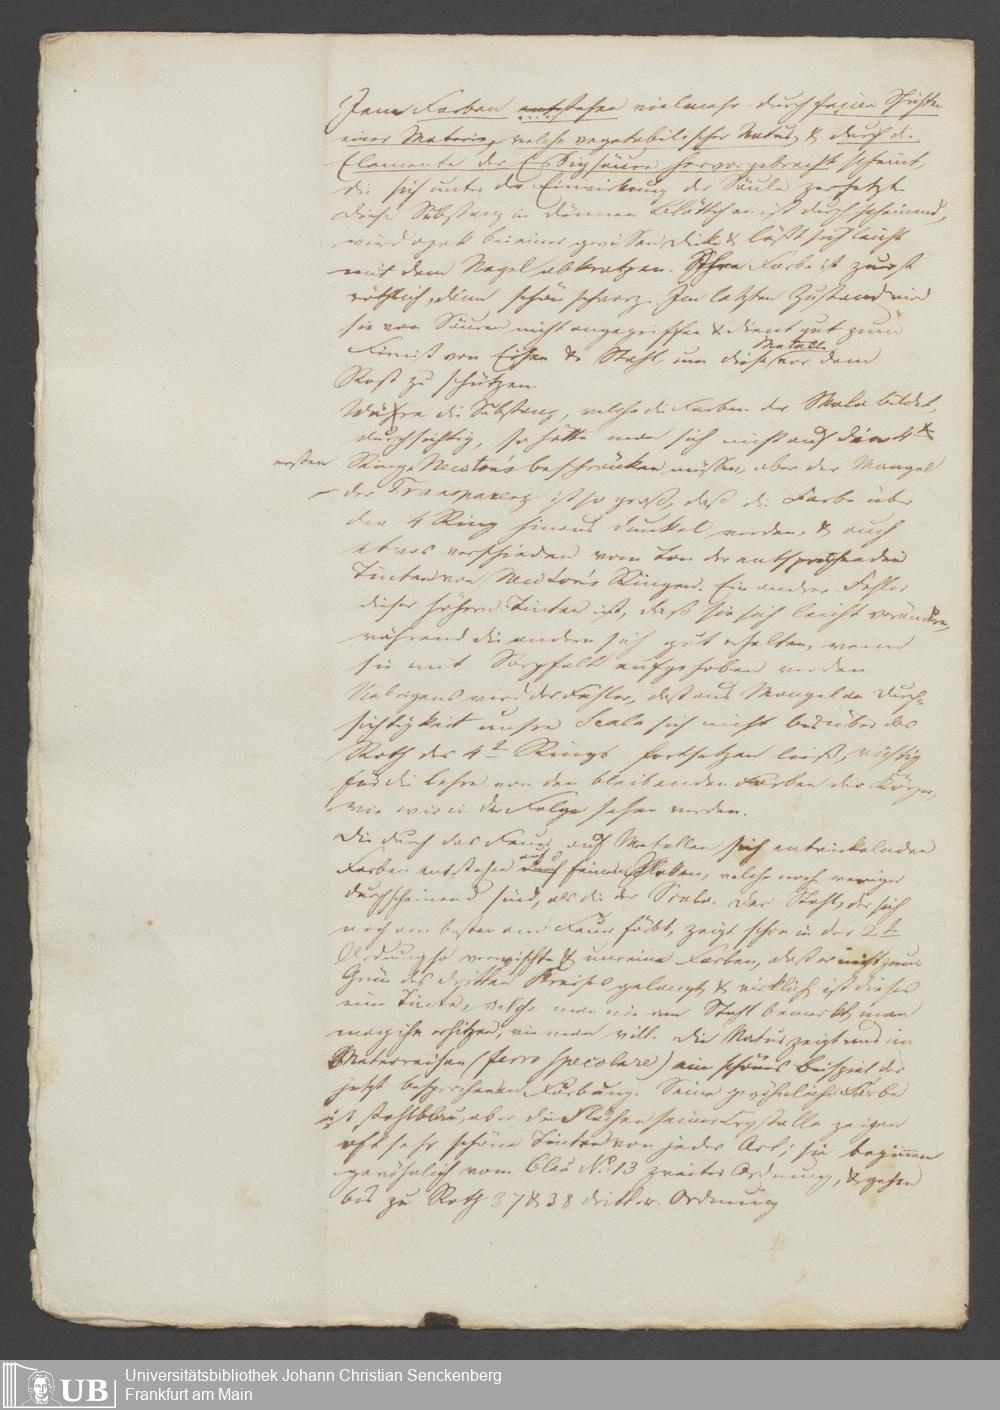 Jene Farben entstehen vielmehr durch feine Schichten
einer Materie, welche vegetabilischer Natur & durch die
Elemente der Essigsäure hervorgebracht scheint,
die sich unter der Einwirkung der Säule zersetzt.
Diese Substanz in dünnen Blättchen ist durchscheinend,
wird opak bei einer gewissen Dicke & läßt sich leicht
mit dem Nagel abkratzen. Ihre Farbe ist zuerst
röthlich, dann schön schwarz. Im letzten Zustand wird
sie von Säuren nicht angegriffen & dient gut zum
Firniß von Eisen & Stahl, um diese Metalle vor dem
Rost zu schützen.
Wäre die Substanz, welche die Farben der Skala bildet,
durchsichtig, so hätte man sich nicht auf die 4
ersten Ringe Newton's beschränken müssen, aber der Mangel
der Transparenz ist so groß, daß die Farbe über
den 4 Ring hinaus dunkel werden, & auch
etwas verschieden vom Ton der entsprechenden
Tinten von Newton's Ringen. Ein andrer Fehler
dieser höhern Tinten ist, daß sie sich leicht verändern,
während die andern sich gut erhalten, wenn
sie mit Sorgfalt aufgehoben werden.
Uebrigens wird der Fehler, daß aus Mangel an Durch-
sichtigkeit unsre Scala sich nicht bis über das
Roth des 4t Rings fortsetzen ließ, wichtig
für die Lehre von den bleibenden Farben der Körper,
wie wir in der Folge sehen werden.
Die durch das Feuer auf Metallen sich entwickelnden
Farben entstehen auch feinen, welche noch weniger
durchscheinend sind, als die der Scala. Der Stahl, der sich
noch am besten am Feuer färbt, zeigt schon in der 2t
Ordnung so verwischte & unreine Farben, daß er nicht zum
Grün des dritten Kreises gelangt & wirklich ist dieses
eine Tinte, welche man nie am Stahl bemerkt, man
mag ihn erhitzen, wie man will. Die Natur zeigt uns im
(ferro specolare) ein schönes Beispiel der
jetzt besprochenen Färbung. Seine gewöhnliche Farbe
ist stahlblau, aber die Flächen seiner Crystalle zeigen
oft sehr schöne Tinten von jeder Art; sie beginnen
gewöhnlich vom Blau No 13 zweiter Ordnung, & gehen
bis zu Roth 37 & 38 dritter Ordnung
UB
Universitätsbibliothek Johann Christian Senckenberg
Frankfurt am Main